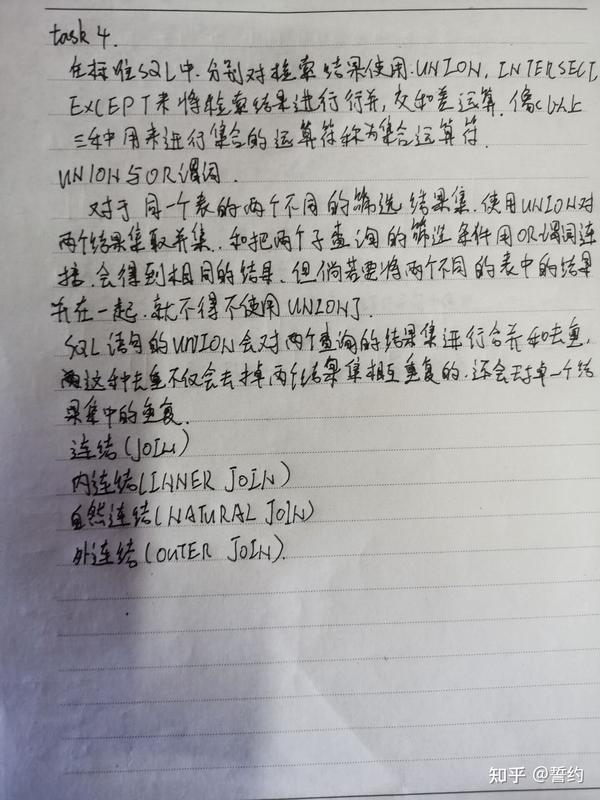 task 4.
在标准SQL中.分别对检索结果使用.UNION,INTERSECT,
EXCEPT来将检索结果进行行并,交和差运算.像以上
三种用来进行集合的运算符称为集合运算符.
UNION与OR谓词.
对于同一个表的两个不同的筛选结果集.使用UNION对
两个结果集取并集.和把两个子查询的筛选条件用OR谓词连
接.会得到相同的结果.但倘若要将两个不同的表中的结果
并在一起.就不得不使用UNION了.
SQL语句的UNION会对两个查询的结果集进行合并和去重,
这种去重不仅会去掉两个结果集相互重复的.还会去掉一个结
果集中的重复.
连结(JOIN)
内连结(INNER JOIN)
自然连结(NATURAL JOIN)
外连结(OUTER JOIN).
知乎 @誓约